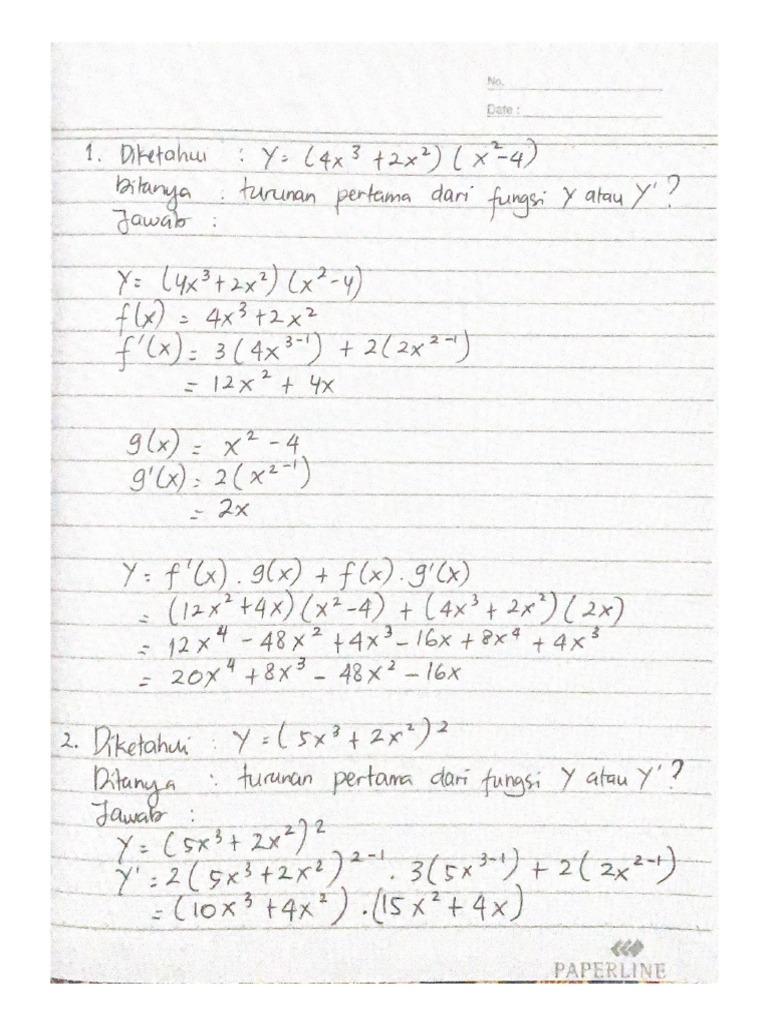 No.
Date :
1. Diketahui : Y = (4x³ + 2x²) (x² - 4)
Ditanya : turunan pertama dari fungsi Y atau Y' ?
Jawab :
Y = (4x³ + 2x²) (x² - 4)
f(x) = 4x³ + 2x²
f'(x) = 3(4x³⁻¹) + 2(2x²⁻¹)
= 12x² + 4x
g(x) = x² - 4
g'(x) = 2(x²⁻¹)
= 2x
Y = f'(x) . g(x) + f(x) . g'(x)
= (12x² + 4x) (x² - 4) + (4x³ + 2x²) (2x)
= 12x⁴ - 48x² + 4x³ - 16x + 8x⁴ + 4x³
= 20x⁴ + 8x³ - 48x² - 16x
2. Diketahui : Y = (5x³ + 2x²)²
Ditanya : turunan pertama dari fungsi Y atau Y' ?
Jawab :
Y = (5x³ + 2x²)²
Y' = 2(5x³ + 2x²)²⁻¹ . 3(5x³⁻¹) + 2(2x²⁻¹)
= (10x³ + 4x²) . (15x² + 4x)
PAPERLINE